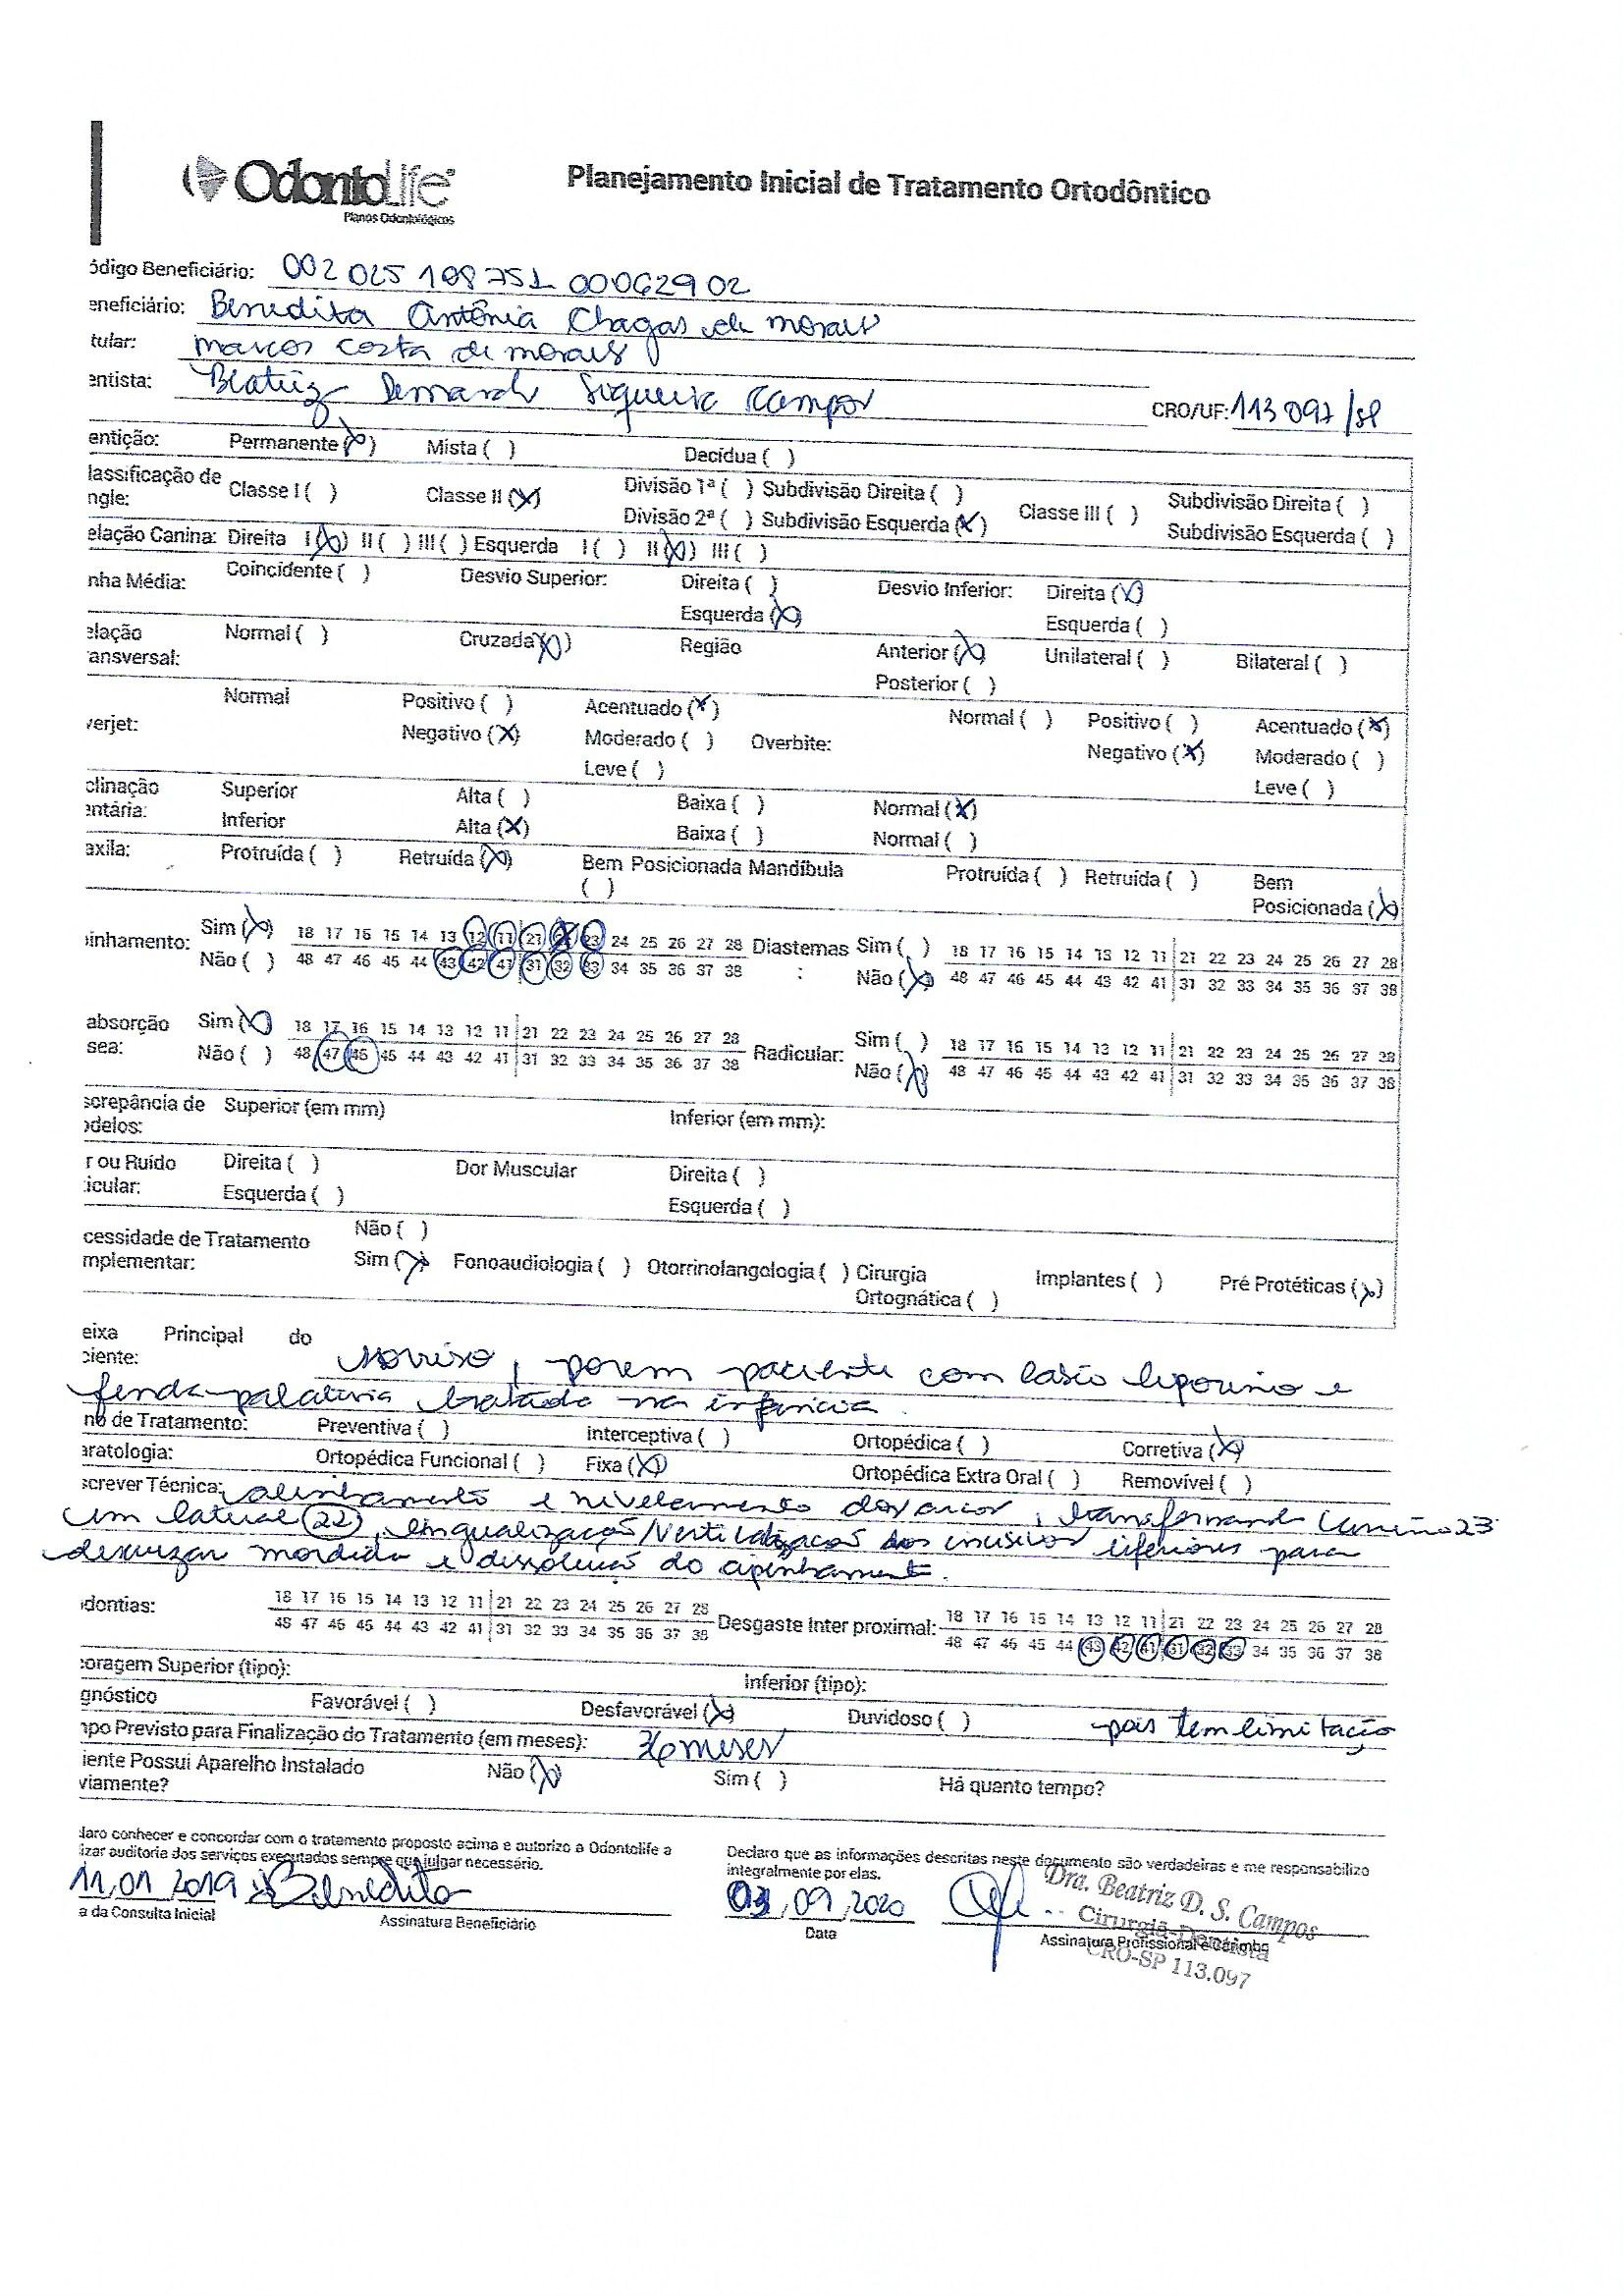 OdontoLife
Planos Odontológicos
Planejamento Inicial de Tratamento Ortodôntico
ódigo Beneficiário: 002 025 108751 00062902
eneficiário: Benedita Antônia Chagas de morais
tular: marcos costa de morais
entista: Beatriz Demarch Siqueira Campos CRO/UF: 113 097/SP
entição: Permanente (X) Mista ( ) Decídua ( )
lassificação de
ngle: Classe I ( ) Classe II (X) Divisão 1ª ( ) Subdivisão Direita ( ) Classe III ( ) Subdivisão Direita ( )
Divisão 2ª ( ) Subdivisão Esquerda (X) Subdivisão Esquerda ( )
elação Canina: Direita I (X) II ( ) III ( ) Esquerda I ( ) II (X) III ( )
nha Média: Coincidente ( ) Desvio Superior: Direita ( ) Desvio Inferior: Direita (X)
Esquerda (X) Esquerda ( )
elação
ansversal: Normal ( ) Cruzada (X) Região Anterior (X) Unilateral ( ) Bilateral ( )
Posterior ( )
verjet: Normal Positivo ( ) Acentuado (X) Normal ( ) Positivo ( ) Acentuado (X)
Negativo (X) Moderado ( ) Overbite: Negativo (X) Moderado ( )
Leve ( ) Leve ( )
clinação
entária: Superior Alta ( ) Baixa ( ) Normal (X)
Inferior Alta (X) Baixa ( ) Normal ( )
axila: Protruída ( ) Retruída (X) Bem Posicionada Mandíbula ( ) Protruída ( ) Retruída ( ) Bem Posicionada (X)
oinhamento: Sim (X) 18 17 16 15 14 13 12 11 21 22 23 24 25 26 27 28 Diastemas : Sim ( ) 18 17 16 15 14 13 12 11 21 22 23 24 25 26 27 28
Não ( ) 48 47 46 45 44 43 42 41 31 32 33 34 35 36 37 38 Não (X) 48 47 46 45 44 43 42 41 31 32 33 34 35 36 37 38
absorção
sea: Sim (X) 18 17 16 15 14 13 12 11 21 22 23 24 25 26 27 28 Radicular: Sim ( ) 18 17 16 15 14 13 12 11 21 22 23 24 25 26 27 28
Não ( ) 48 47 46 45 44 43 42 41 31 32 33 34 35 36 37 38 Não (X) 48 47 46 45 44 43 42 41 31 32 33 34 35 36 37 38
screpância de
odelos: Superior (em mm) Inferior (em mm):
r ou Ruído
icular: Direita ( ) Dor Muscular Direita ( )
Esquerda ( ) Esquerda ( )
cessidade de Tratamento
mplementar: Não ( )
Sim (X) Fonoaudiologia ( ) Otorrinolangologia ( ) Cirurgia Ortognática ( ) Implantes ( ) Pré Protéticas (X)
eixa Principal do
ciente: sorriso, porem paciente com labio leporino e
fenda palatina tratada na infancia.
no de Tratamento: Preventiva ( ) Interceptiva ( ) Ortopédica ( ) Corretiva (X)
aratologia: Ortopédica Funcional ( ) Fixa (X) Ortopédica Extra Oral ( ) Removível ( )
screver Técnica: alinhamento e nivelamento dos arcos, transformando canino 23
em lateral (22), lingualização/verticalização dos incisivos inferiores para
descruzar mordida e dissolução do apinhamento.
odontias: 18 17 16 15 14 13 12 11 21 22 23 24 25 26 27 28 Desgaste Inter proximal: 18 17 16 15 14 13 12 11 21 22 23 24 25 26 27 28
48 47 46 45 44 43 42 41 31 32 33 34 35 36 37 38 48 47 46 45 44 43 42 41 31 32 33 34 35 36 37 38
coragem Superior (tipo): Inferior (tipo):
gnóstico Favorável ( ) Desfavorável (X) Duvidoso ( ) pois tem limitação
npo Previsto para Finalização do Tratamento (em meses): 36 meses
iente Possui Aparelho Instalado
viamente? Não (X) Sim ( ) Há quanto tempo?
laro conhecer e concordar com o tratamento proposto acima e autorizo a Odontolife a
izar auditoria dos serviços executados sempre que julgar necessário.
11,01 2019 Benedita
a da Consulta Inicial Assinatura Beneficiário
Declaro que as informações descritas neste documento são verdadeiras e me responsabilizo
integralmente por elas.
03,09,2020
Data
Dra. Beatriz D. S. Campos
Cirurgiã-Dentista
Assinatura Profissional e Carimbo
CRO-SP 113.097